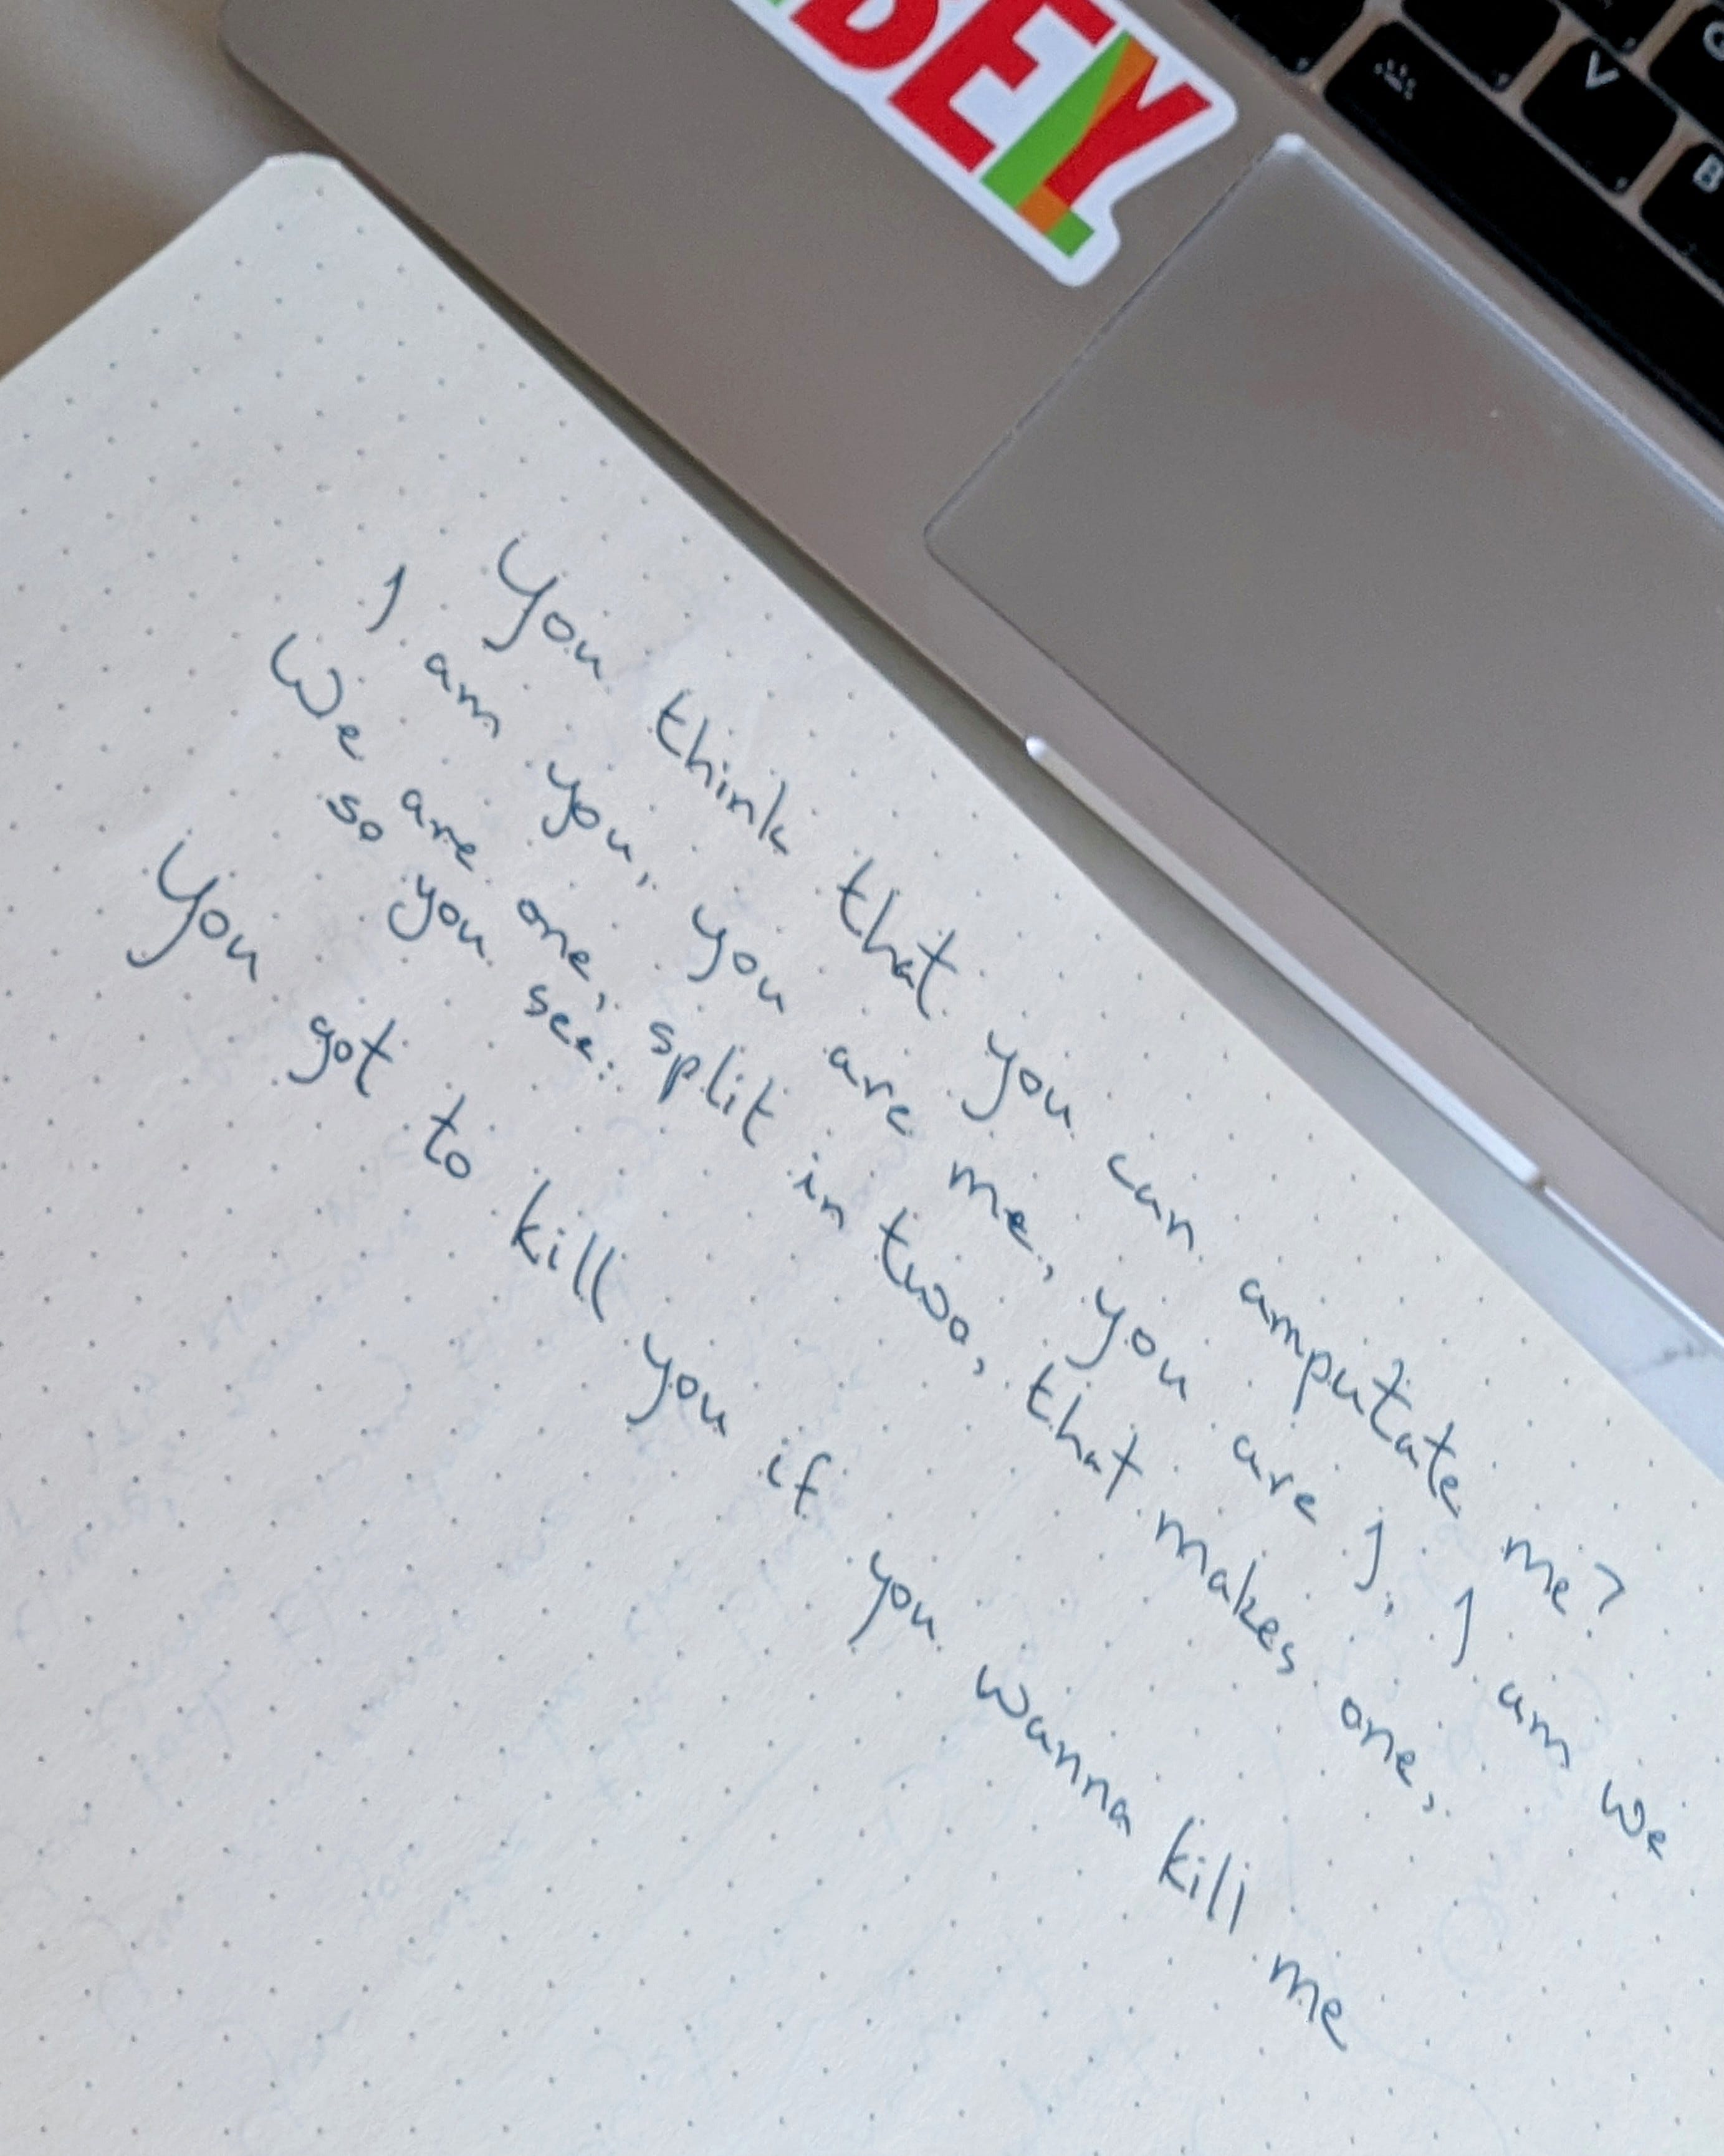 BEY
V
B
You think that you can amputate me?
I am you, you are me, you are I, I am we
We are one, split in two, that makes one,
so you see:
You got to kill you if you wanna kill me